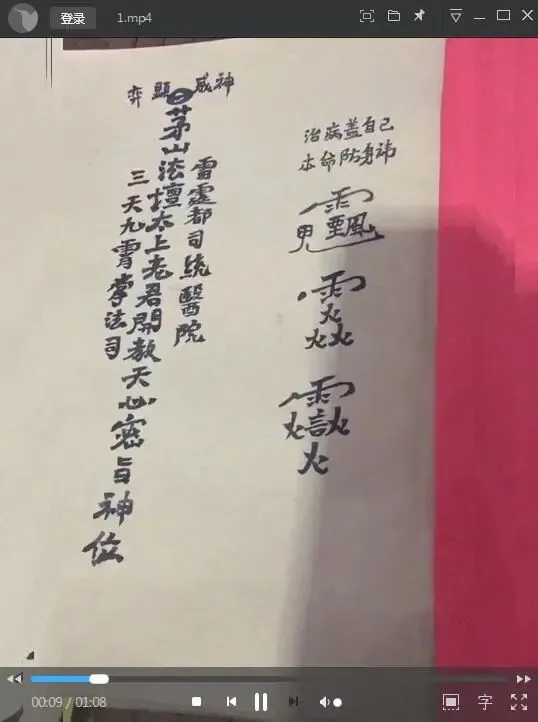 登录
1.mp4
治病盖自己
本命防身讳
雷霆都司統醫院
茅山法壇太上老君開教天心密旨神位
三天九霄掌法司
00:09 / 01:08
字